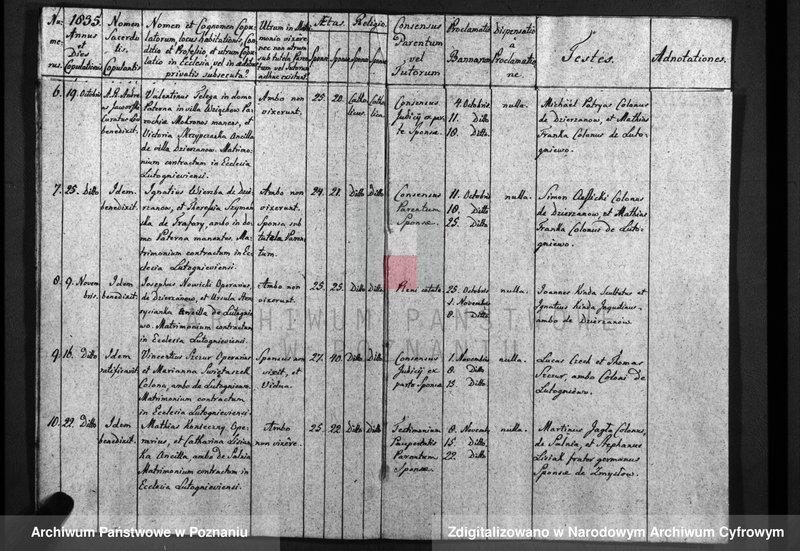 Numerus.
1835. Annus et Dies Copulationis
Nomen Sacerdotis Copulantis.
Nomen et Cognomen Copulatorum, locus habitationis,
et Professio, et utrum Copulatio in Ecclesia vel in
privatis subsecuta?
Utrum in Matrimonio vixerit
nec non utrum sub tutela Parentum vel Tutorum
adhuc extitit.
Ætas.
Sponsi Sponsa
Religio.
Sponsi Sponsa
Consensus
Parentum
vel
Tutorum
Proclamatio
Bannorum
Dispensatio
a
Proclamatione.
Testes.
Adnotationes.
6.
19. Octobris
benedixit.
Valentinus Telega in domo
Paterna in villa
Parochiæ Mokronos manens, et
Victoria Skrzypczaska Ancilla
de villa Dzierzanow. Matrimonium
contractum in Ecclesia
Lutogniewiensi.
Ambo non
vixerunt.
25. 20.
Consensus
Judicij ex parte
Sponsæ.
4. Octobris
11. Ditto
18. Ditto
nulla.
Michael Patryas Colonus
de Dzierzanow, et Mathias
Franka Colonus de Lutogniewo.
7.
25. Ditto
Idem
benedixit.
Ignatius Wierzba de Dzierzanow,
ambo in domo
Paterna manentes. Matrimonium
contractum in Ecclesia
Lutogniewiensi.
Ambo non
vixerunt.
Sponsa sub
tutela Parentum.
24. 21. Ditto Ditto
Consensus
Parentum
Sponsæ.
11. Octobris
18. Ditto
25. Ditto
nulla.
Simon
Colonus
de Dzierzanow, et Mathias
Franka Colonus de Lutogniewo.
8.
9. Novembris.
Idem
benedixit.
Josephus Nowicki Operarius,
de Dzierzanow, et Ursula
Ancilla de Lutogniewo.
Matrimonium contractum
in Ecclesia Lutogniewiensi.
Ambo non
vixerunt.
25. 25. Ditto Ditto
Pleni ætate
25. Octobris
1. Novembris
8. Ditto
nulla.
Joannes Kinda Scultetus et
Ignatius Kinda
ambo de Dzierzanow.
9.
16. Ditto
Idem
Vincentius Szczur Operarius
et Marianna Swiętaszek
Colona, ambo de Lutogniewo.
Matrimonium contractum
in Ecclesia Lutogniewiensi.
Sponsus non
vixit, et
Vidua.
27. 40. Ditto Ditto
Consensus
Judicij ex
parte Sponsæ
1. Novembris
8. Ditto
15. Ditto
nulla.
Lucas Czech et Thomas
Szczur, ambo Coloni de
Lutogniewo.
10.
22. Ditto
Idem
benedixit.
Mathias Konieczny Operarius,
et Catharina
Ancilla, ambo de Salnia
Matrimonium contractum in
Ecclesia Lutogniewiensi.
Ambo
non vixere.
25. 22 Ditto Ditto
Testimonium
Paupertatis
Parentum
Sponsæ.
8. Novembris
15. Ditto
22. Ditto
nulla.
Martinus Jagła Colonus,
de Salnia, et Stephanus
Lisiak frater germanus
Sponsæ de Zmysłow.
ARCHIWUM PAŃSTWOWE
W POZNANIU
Archiwum Państwowe w Poznaniu
Zdigitalizowano w Narodowym Archiwum Cyfrowym